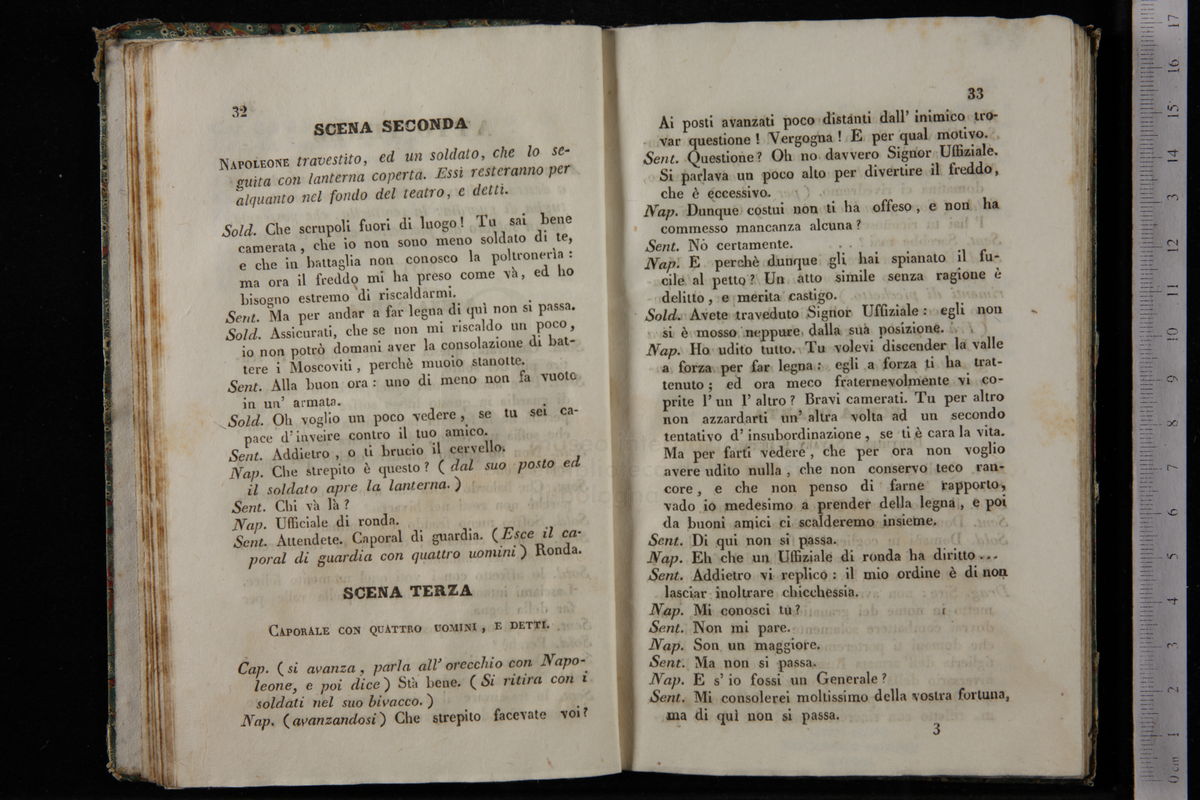 32
SCENA SECONDA
NAPOLEONE travestito, ed un soldato, che lo se-
guita con lanterna coperta. Essi resteranno per
alquanto nel fondo del teatro, e detti.
Sold. Che scrupoli fuori di luogo! Tu sai bene
camerata, che io non sono meno soldato di te,
e che in battaglia non conosco la poltroneria:
ma ora il freddo mi ha preso come và, ed ho
bisogno estremo di riscaldarmi.
Sent. Ma per andar a far legna di quì non si passa.
Sold. Assicurati, che se non mi riscaldo un poco,
io non potrò domani aver la consolazione di bat-
tere i Moscoviti, perchè muoio stanotte.
Sent. Alla buon ora: uno di meno non fa vuoto
in un' armata.
Sold. Oh voglio un poco vedere, se tu sei ca-
pace d'inveire contro il tuo amico.
Sent. Addietro, o ti brucio il cervello.
Nap. Che strepito è questo? (dal suo posto ed
il soldato apre la lanterna.)
Sent. Chi và là?
Nap. Ufficiale di ronda.
Sent. Attendete. Caporal di guardia. (Esce il ca-
poral di guardia con quattro uomini) Ronda.
SCENA TERZA
CAPORALE CON QUATTRO UOMINI, E DETTI.
Cap. (si avanza, parla all' orecchio con Napo-
leone, e poi dice) Stà bene. (Si ritira con i
soldati nel suo bivacco.)
Nap. (avanzandosi) Che strepito facevate voi?
33
Ai posti avanzati poco distanti dall' inimico tro-
var questione! Vergogna! E per qual motivo.
Sent. Questione? Oh no davvero Signor Uffiziale.
Si parlava un poco alto per divertire il freddo,
che è eccessivo.
Nap. Dunque costui non ti ha offeso, e non ha
commesso mancanza alcuna?
Sent. Nò certamente.
Nap. E perchè dunque gli hai spianato il fu-
cile al petto? Un atto simile senza ragione è
delitto, e merita castigo.
Sold. Avete traveduto Signor Uffiziale: egli non
si è mosso neppure dalla sua posizione.
Nap. Ho udito tutto. Tu volevi discender la valle
a forza per far legna: egli a forza ti ha trat-
tenuto; ed ora meco fraternevolmente vi co-
prite l' un l' altro? Bravi camerati. Tu per altro
non azzardarti un' altra volta ad un secondo
tentativo d' insubordinazione, se ti è cara la vita.
Ma per farti vedere, che per ora non voglio
avere udito nulla, che non conservo teco ran-
core, e che non penso di farne rapporto,
vado io medesimo a prender della legna, e poi
da buoni amici ci scalderemo insieme.
Sent. Di qui non si passa.
Nap. Eh che un Uffiziale di ronda ha diritto...
Sent. Addietro vi replico: il mio ordine è di non
lasciar inoltrare chicchessia.
Nap. Mi conosci tu?
Sent. Non mi pare.
Nap. Son un maggiore.
Sent. Ma non si passa.
Nap. E s' io fossi un Generale?
Sent. Mi consolerei moltissimo della vostra fortuna,
ma di quì non si passa.
3
0 cm 1 2 3 4 5 6 7 8 9 10 11 12 13 14 15 16 17